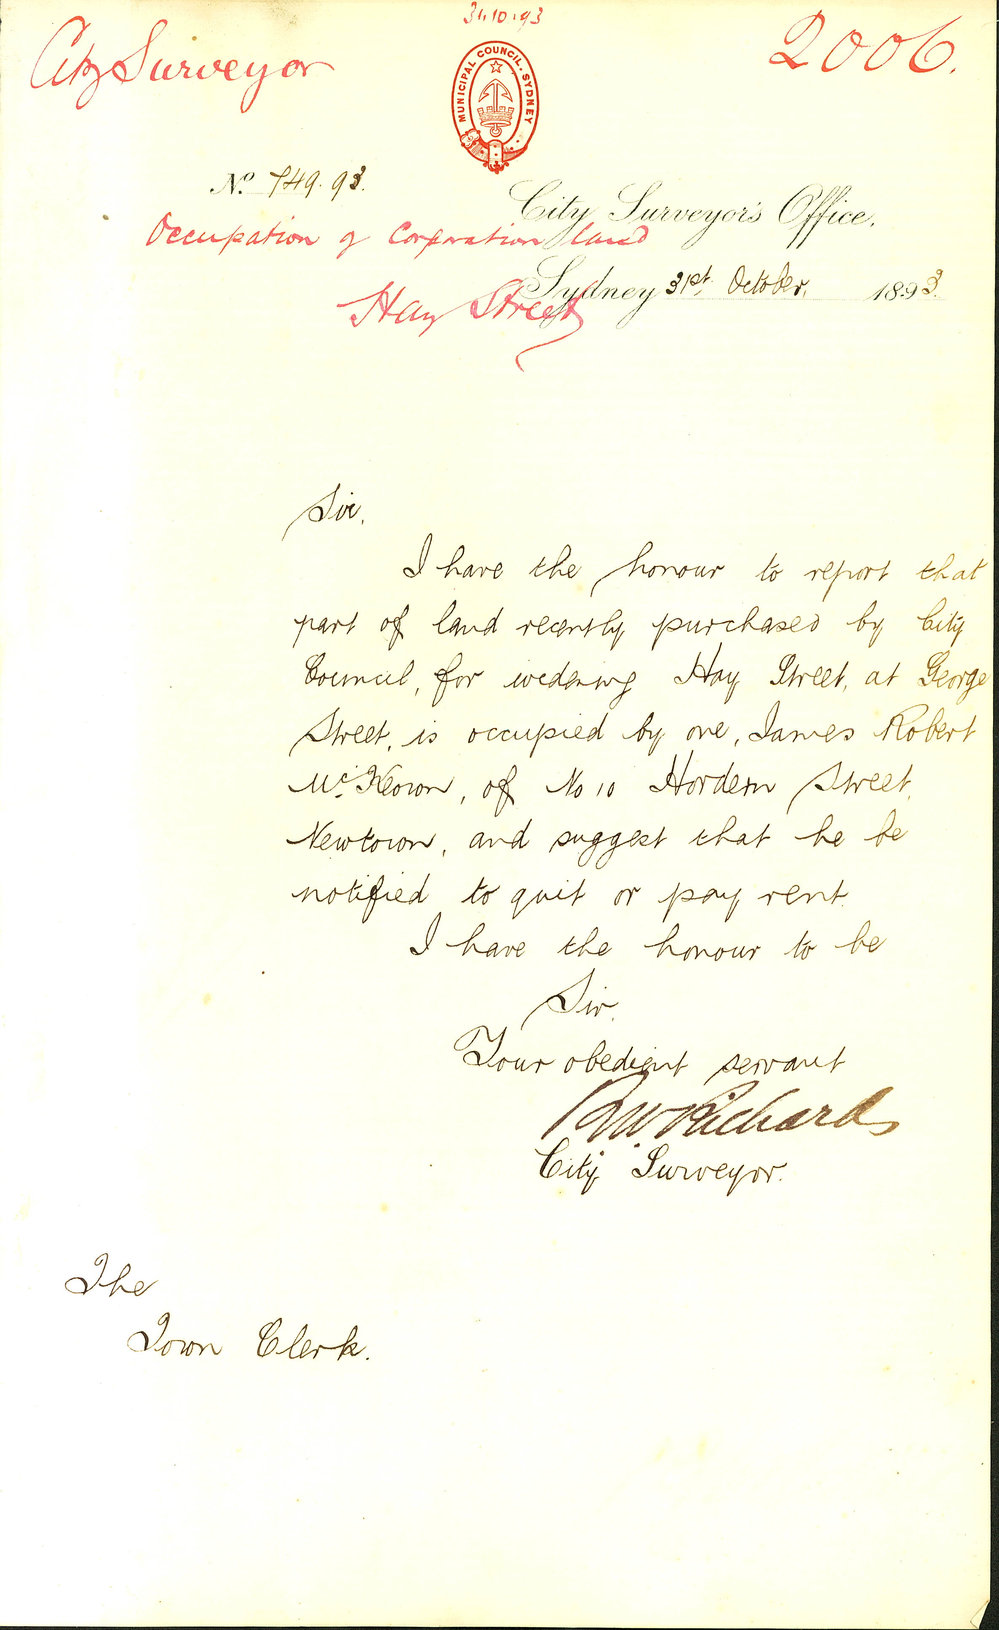 31.10.93
City Surveyor
2006.
MUNICIPAL COUNCIL. SYDNEY
No. 749.93.
City Surveyor's Office,
Occupation of Corporation land
Sydney 31st October, 1893.
Hay Street
Sir,
I have the honour to report that
part of land recently purchased by City
Council, for widening Hay Street, at George
Street, is occupied by one, James Robert
McKeown, of No 10 Hordern Street,
Newtown, and suggest that he be
notified to quit or pay rent.
I have the honour to be
Sir,
Your obedient servant
R.W. Richards
City Surveyor.
The
Town Clerk.